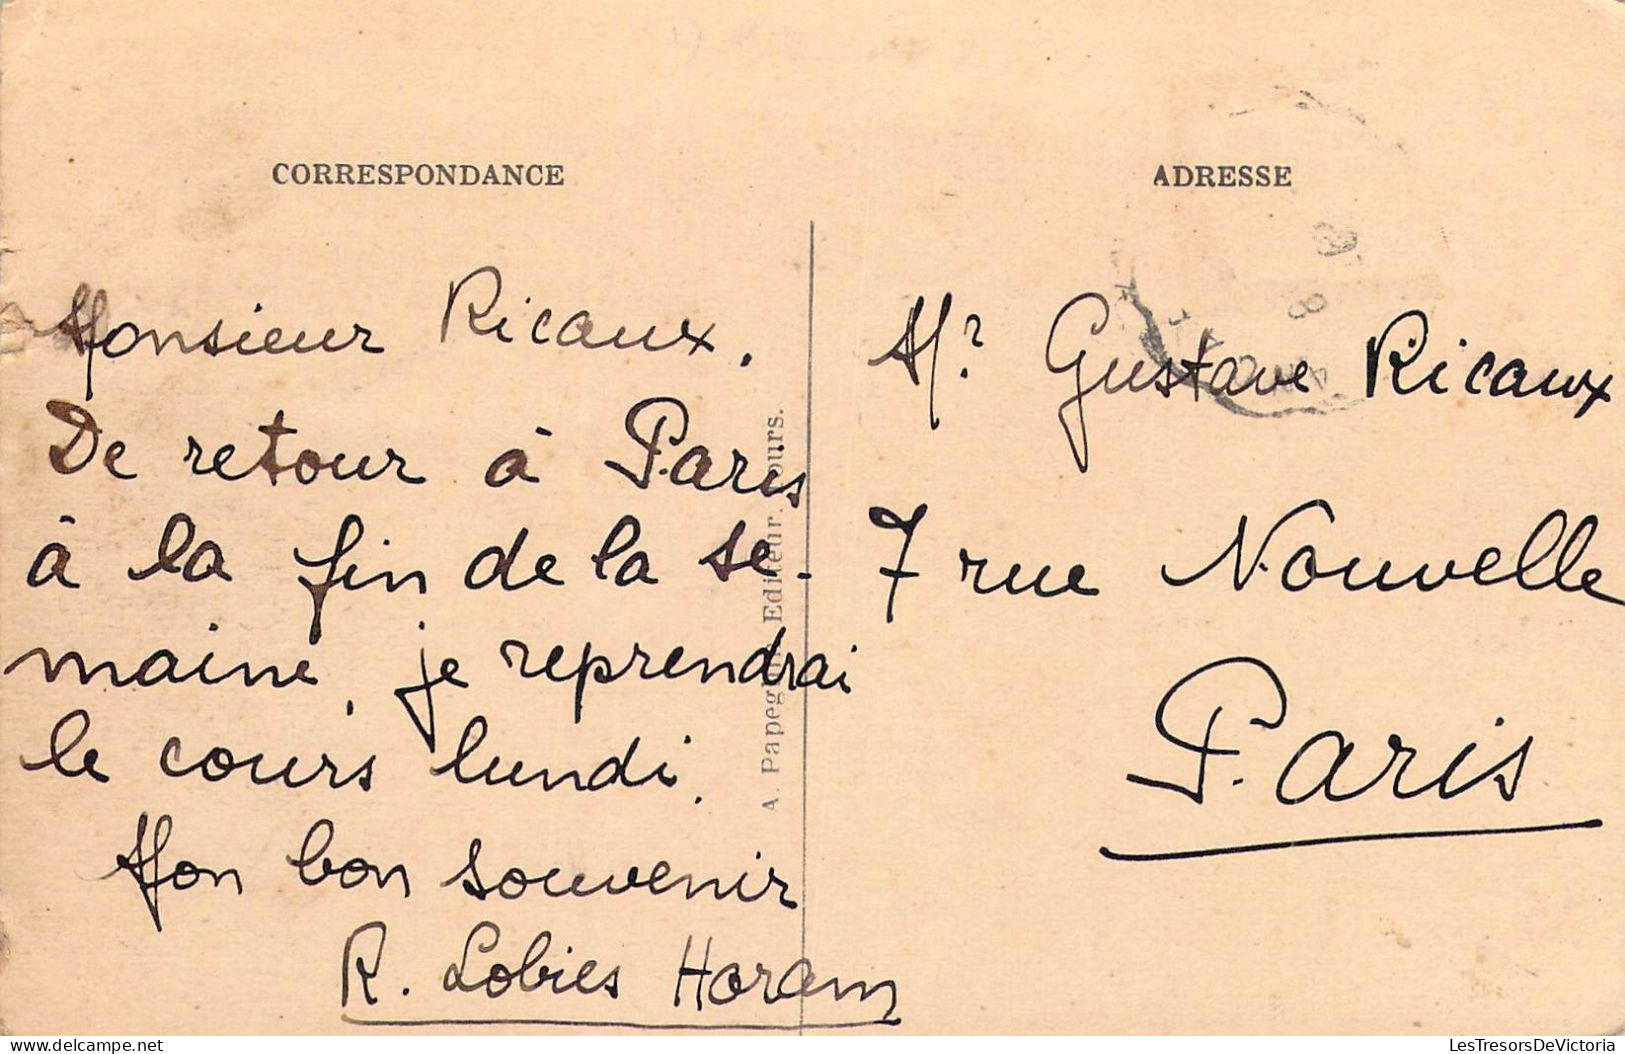 CORRESPONDANCE
Monsieur Ricaux.
De retour à Paris
à la fin de la se-
maine, je reprendrai
le cours lundi.
Mon bon souvenir
R. Lobies Horam
A. Papeghin, Editeur, Tours.
ADRESSE
Mr Gustave Ricaux
7 rue Nouvelle
Paris
delcampe.net
LesTresorsDeVictoria